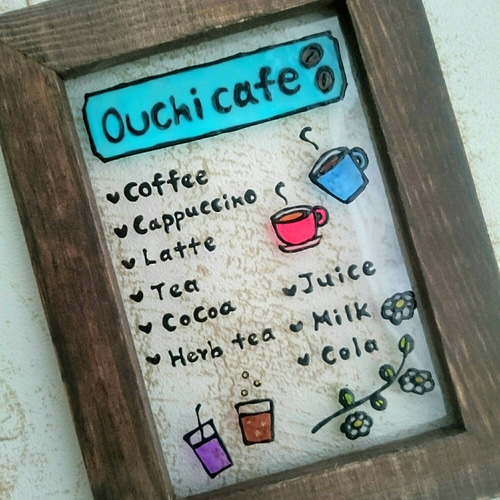 Ouchi cafe
Coffee
Cappuccino
Latte
Tea
CoCoa
Herb tea
Juice
Milk
Cola